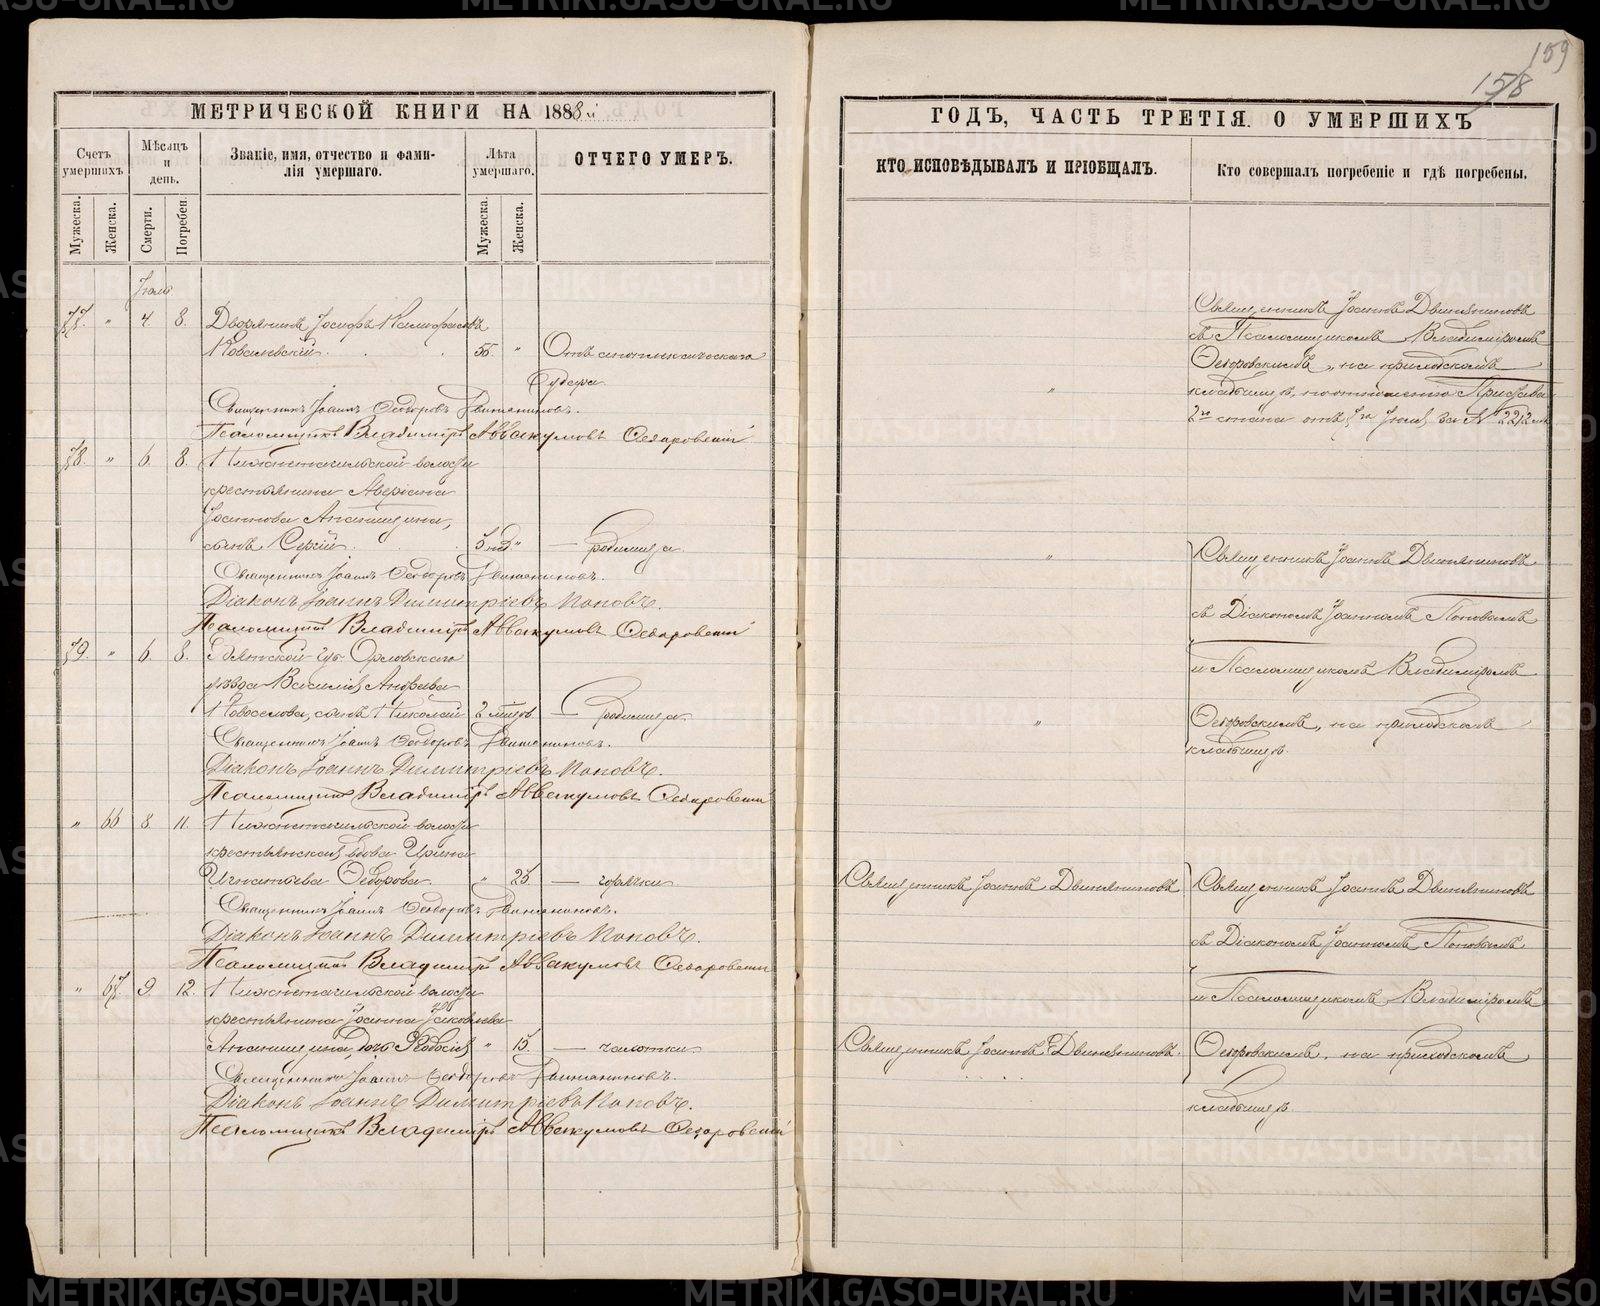 МЕТРИЧЕСКОЙ КНИГИ НА 1888й
Счетъ умершихъ
Мѣсяцъ и день.
Званіе, имя, отчество и фами-
лія умершаго.
Лѣта умершаго.
ОТЧЕГО УМЕРЪ.
Мужеска.
Женска.
Смерти.
Погребен.
Мужеска.
Женска.
77. " 4 8. Дворянинъ Іосифъ
Ковалевскій. 55 " Отъ апоплексическаго
удара
Священникъ Іоаннъ Ѳеодоровъ Двиняниновъ.
Псаломщикъ Владиміръ Аввакумовъ
78. " 6. 8. Нижнетагильской волости
крестьянина Аверіана
Іоаннова
сынъ Сергій. " — родимца.
Священникъ Іоаннъ Ѳеодоровъ Двиняниновъ.
Діаконъ Іоаннъ Димитріевъ Поповъ.
Псаломщикъ Владиміръ Аввакумовъ
79. " 6. 8. Вятской губ. Орловскаго
уѣзда Василія Андреева
Новоселова, сынъ Николай 2 — родимца.
Священникъ Іоаннъ Ѳеодоровъ Двиняниновъ.
Діаконъ Іоаннъ Димитріевъ Поповъ.
Псаломщикъ Владиміръ Аввакумовъ
" 66 8. 11. Нижнетагильской волости
крестьянская вдова Ирина
Игнатьева Ѳедорова. " 25. — горячки
Священникъ Іоаннъ Ѳеодоровъ Двиняниновъ.
Діаконъ Іоаннъ Димитріевъ Поповъ.
Псаломщикъ Владиміръ Аввакумовъ
" 67. 9. 12. Нижнетагильской волости
крестьянина Іоанна Іаковлева
дочь Ѳеодосія " 15. — чахотки
Священникъ Іоаннъ Ѳеодоровъ Двиняниновъ.
Діаконъ Іоаннъ Димитріевъ Поповъ.
Псаломщикъ Владиміръ Аввакумовъ
159
158
ГОДЪ, ЧАСТЬ ТРЕТІЯ. О УМЕРШИХЪ
КТО ИСПОВѢДЫВАЛЪ И ПРІОБЩАЛЪ.
Кто совершалъ погребеніе и гдѣ погребены.
Священникъ Іоаннъ Двиняниновъ
съ Псаломщикомъ Владиміромъ
на приходскомъ
кладбищѣ, по отношенію Пристава
2го стана отъ 7го Іюля за № 2212
Священникъ Іоаннъ Двиняниновъ
съ Діакономъ Іоанномъ Поповымъ
и Псаломщикомъ Владиміромъ
на приходскомъ
кладбищѣ.
Священникъ Іоаннъ Двиняниновъ
Священникъ Іоаннъ Двиняниновъ
съ Діакономъ Іоанномъ Поповымъ
и Псаломщикомъ Владиміромъ
Священникъ Іоаннъ Двиняниновъ.
на приходскомъ
кладбищѣ.
METRIKI.GASO-URAL.RU